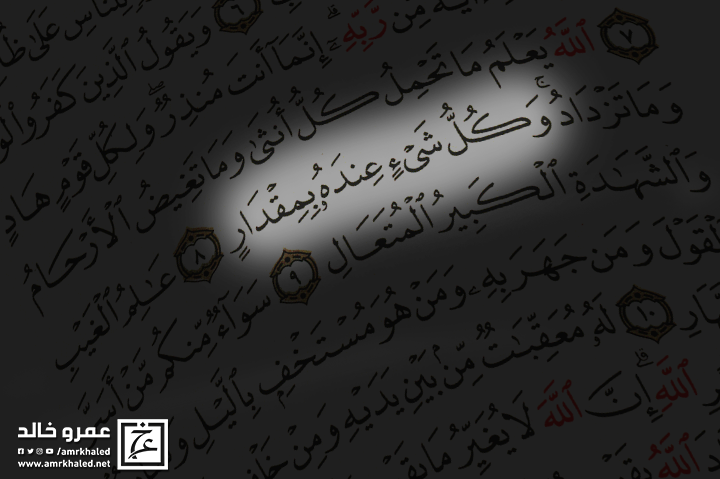 لنَّاسِ عَلَىٰ
٦ وَيَقُولُ ٱلَّذِينَ كَفَرُوا۟ لَوْ
مِّن رَّبِّهِۦٓ ۗ إِنَّمَآ أَنتَ مُنذِرٌ ۖ وَلِكُلِّ قَوْمٍ هَادٍ
٧ ٱللَّهُ يَعْلَمُ مَا تَحْمِلُ كُلُّ أُنثَىٰ وَمَا تَغِيضُ ٱلْأَرْحَامُ
وَمَا تَزْدَادُ ۖ وَكُلُّ شَىْءٍ عِندَهُۥ بِمِقْدَارٍ ٨ عَـٰلِمُ ٱلْغَيْبِ
وَٱلشَّهَـٰدَةِ ٱلْكَبِيرُ ٱلْمُتَعَالِ ٩ سَوَآءٌ مِّنكُم مَّنْ أَسَرَّ
لْقَوْلَ وَمَن جَهَرَ بِهِۦ وَمَنْ هُوَ مُسْتَخْفٍۭ بِٱلَّيْلِ
١٠ لَهُۥ مُعَقِّبَـٰتٌ مِّنۢ بَيْنِ يَدَيْهِ وَمِنْ
ٱللَّهِ ۗ إِنَّ ٱللَّهَ لَا يُغَيِّرُ مَا
ٱللَّهُ
عمرو خالد
/amrkhaled
www.amrkhaled.net